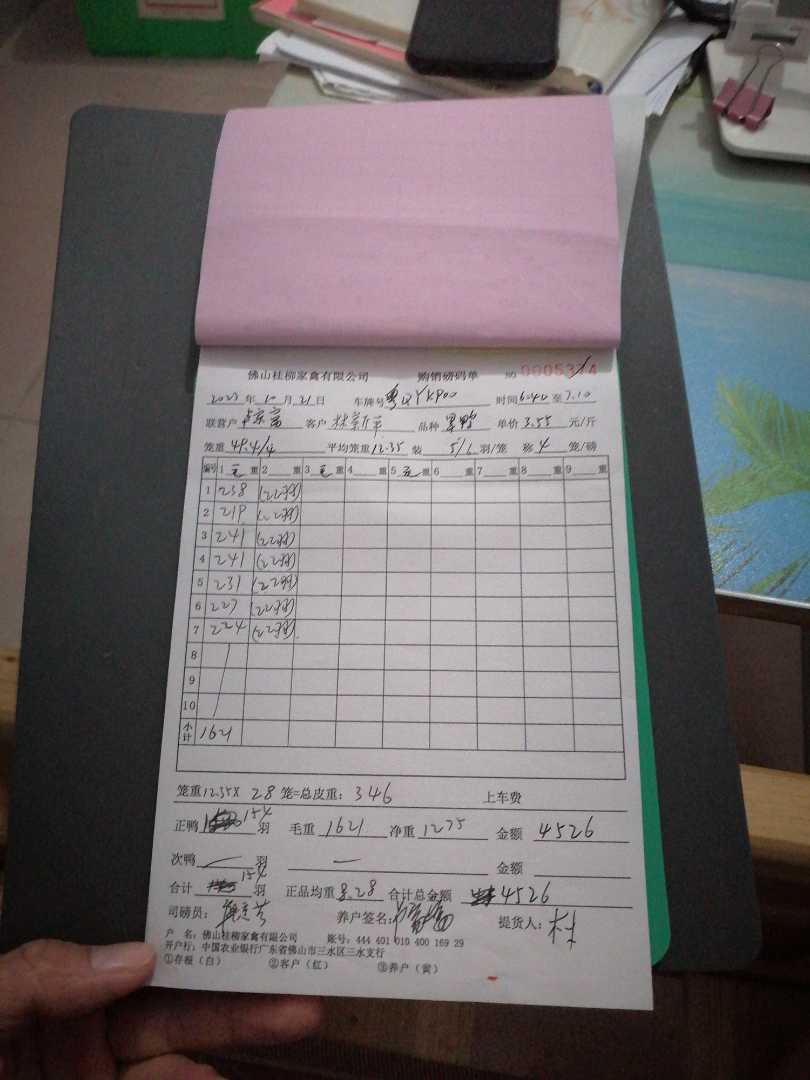 佛山桂柳家禽有限公司 购销磅码单 №0005374
2023年10月21日 车牌号粤QYK900 时间6:40至7:10
联营户 客户林新平 品种黑鸭 单价3.55元/斤
笼重49.4/4 平均笼重12.35 装5/6羽/笼 称4笼/磅
编号 1毛重 2重 3毛重 4重 5毛重 6重 7重 8重 9重
1 238 (22羽)
2 219 (22羽)
3 241 (22羽)
4 241 (22羽)
5 231 (22羽)
6 227 (22羽)
7 224 (22羽)
8
9
10
小计 1621
笼重12.35×28笼=总皮重:346 上车费
正鸭154羽 毛重1621 净重1275 金额4526
次鸭一羽 一 金额
合计154羽 正品均重8.28 合计总金额4526
司磅员: 养户签名: 提货人:林
户 名:佛山桂柳家禽有限公司 账号:444 401 010 400 169 29
开户行:中国农业银行广东省佛山市三水区三水支行
①存根(白) ②客户(红) ③养户(黄)